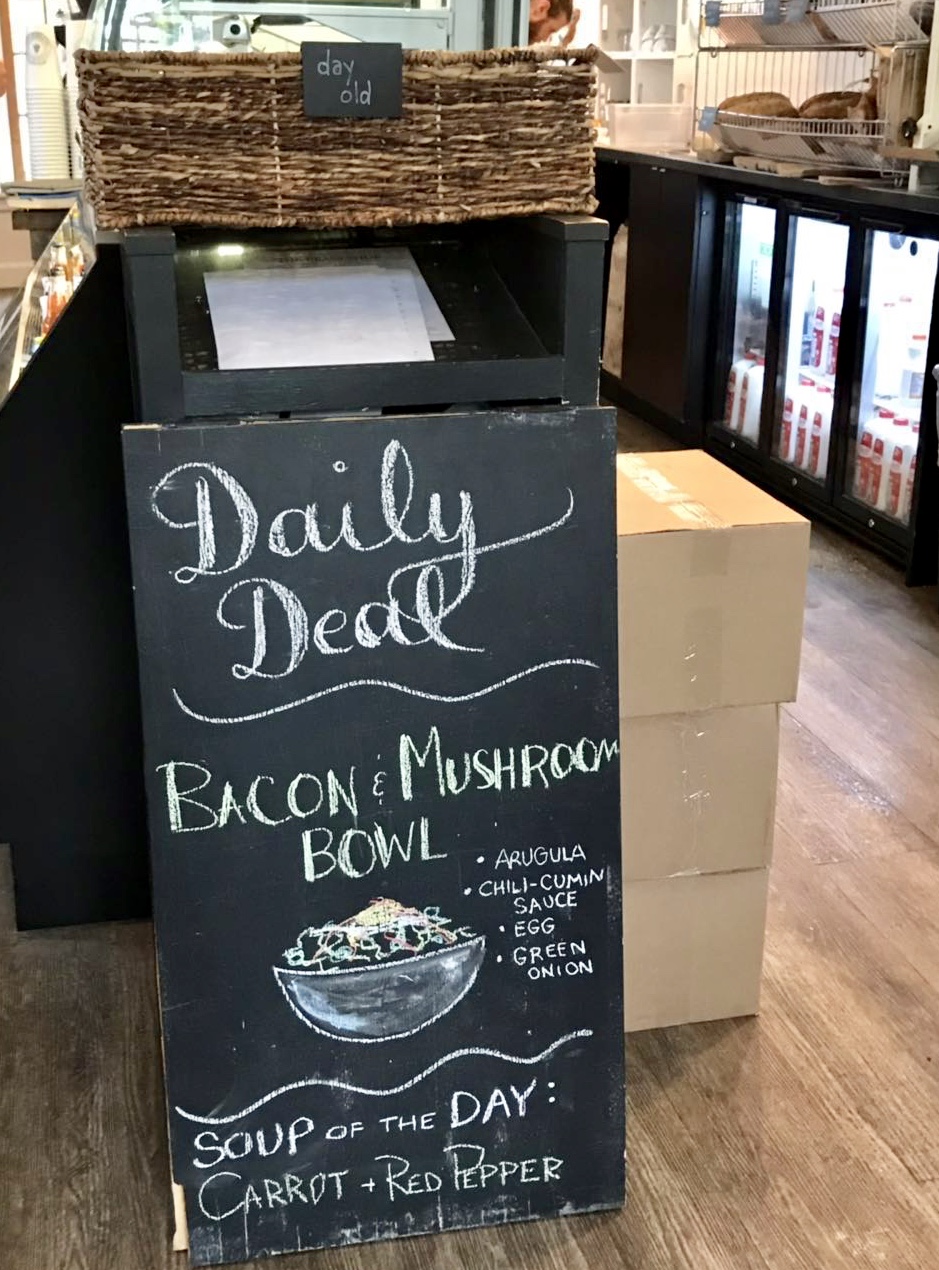 day
old
Daily
Deal
BACON & MUSHROOM
BOWL
• ARUGULA
• CHILI-CUMIN
SAUCE
• EGG
• GREEN
ONION
SOUP OF THE DAY:
CARROT + RED PEPPER